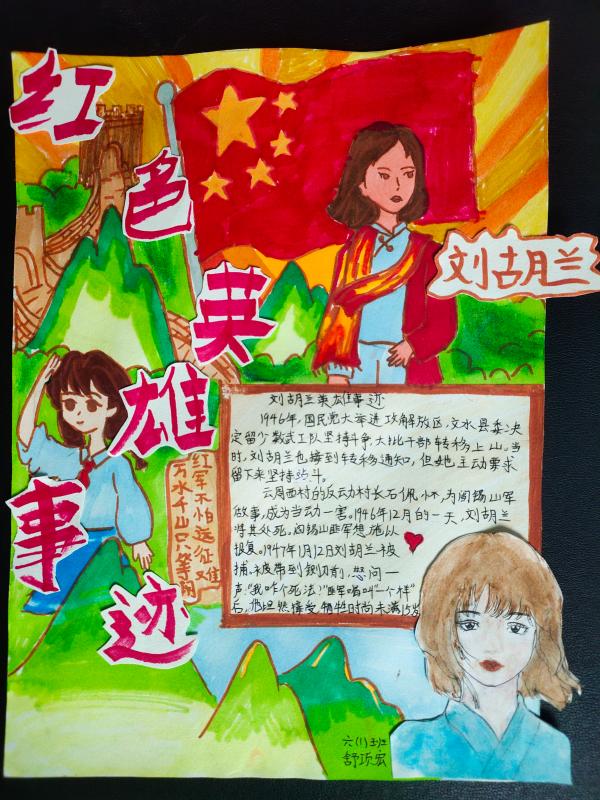 红色英雄事迹
刘胡兰
刘胡兰英雄事迹
1946年,国民党大举进攻解放区,文水县委决
定留少数武工队坚持斗争,大批干部转移上山。当
时,刘胡兰也接到转移通知,但她主动要求
留下来坚持斗。
云周西村的反动村长石佩怀,为阎锡山军
做事,成为当动一害。1946年12月的一天,刘胡兰
将其处死。阎锡山匪军想施以
报复。1947年1月12日刘胡兰被
捕。被带到铡刀前,怒问一
声:"我咋个死法!"匪军喝叫"一个样"
后,她坦然接受,牺牲时尚未满15岁
红军不怕远征难
万水千山只等闲
六(1)班
舒项宏